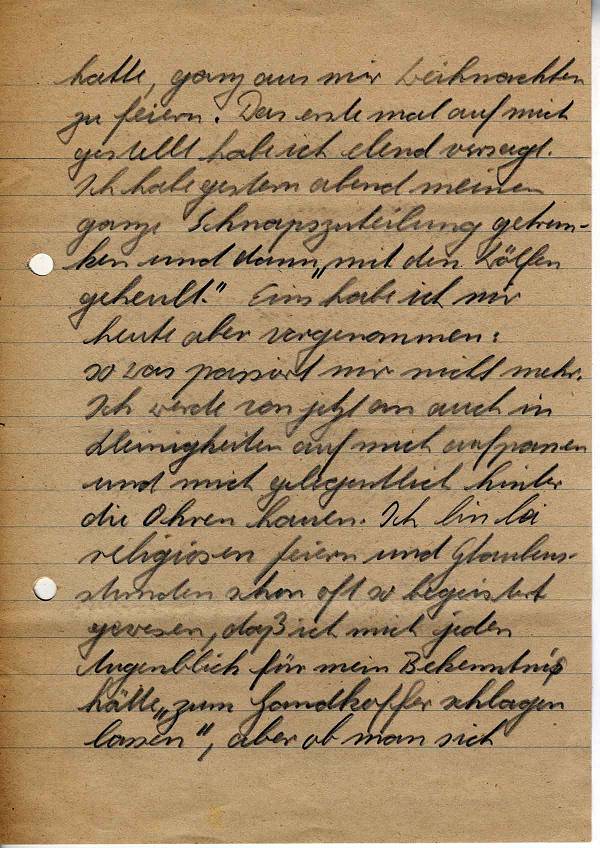 hatte, ganz aus mir Weihnachten
zu feiern. Das erste mal auf mich
gestellt habe ich elend versagt.
Ich habe gestern abend meinen
ganze Schnapszuteilung getrun-
ken und dann „mit den Wölfen
geheult." Eins habe ich mir
heute aber vorgenommen:
so was passiert mir nicht mehr.
Ich werde von jetzt an auch in
Kleinigkeiten auf mich aufpassen
und mich gelegentlich hinter
die Ohren hauen. Ich bin bei
religiösen feiern und Glaubens-
stunden schon oft so begeistert
gewesen, daß ich mich jeden
Augenblick für mein Bekenntnis
hätte „zum Handkoffer schlagen
lassen", aber ob man sich